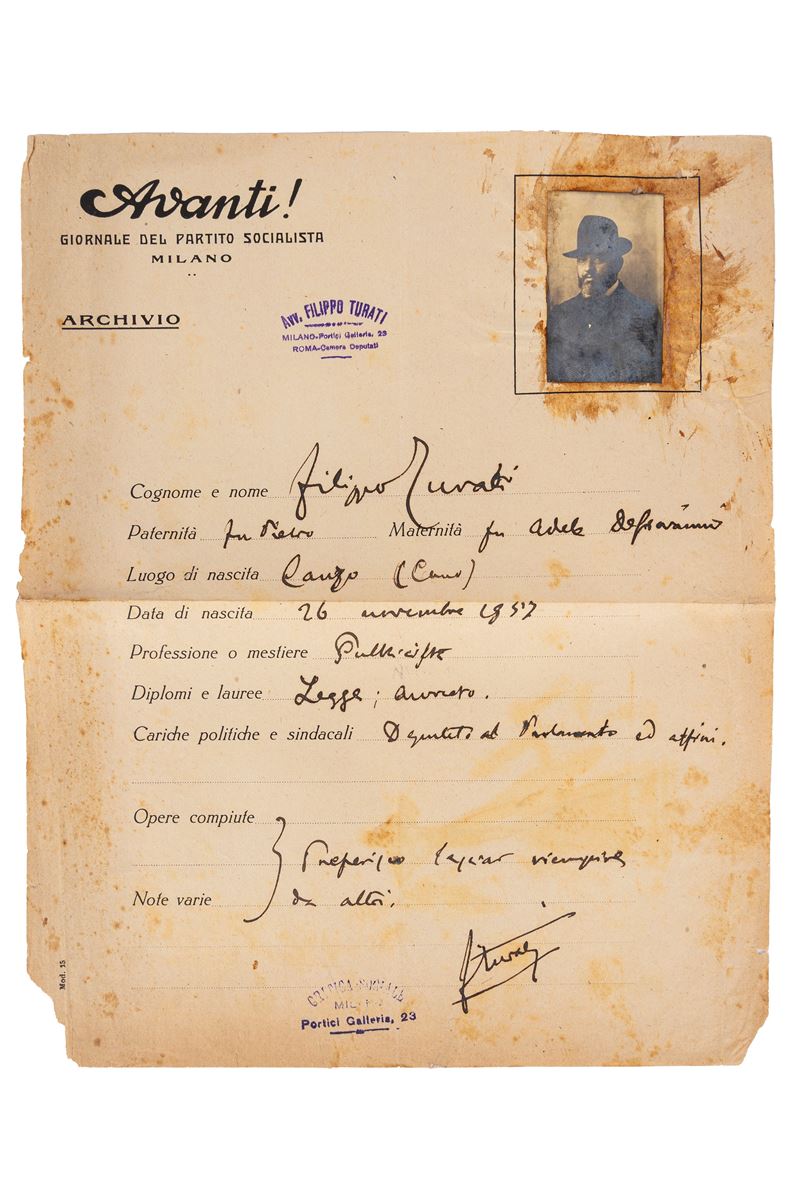 Avanti!
GIORNALE DEL PARTITO SOCIALISTA
MILANO
ARCHIVIO
Avv. FILIPPO TURATI
MILANO-Portici Galleria, 23
ROMA-Camera Deputati
Cognome e nome Filippo Turati
Paternità fu Pietro Maternità fu Adele
Luogo di nascita Canzo (Como)
Data di nascita 26 novembre 1857
Professione o mestiere Pubblicista
Diplomi e lauree Legge;
Cariche politiche e sindacali Deputato al Parlamento ed affini.
Opere compiute
Preferisco lasciar riempire
Note varie da altri.
FTurati
CRITICA SOCIALE
MILANO
Portici Galleria, 23
Mod. 15